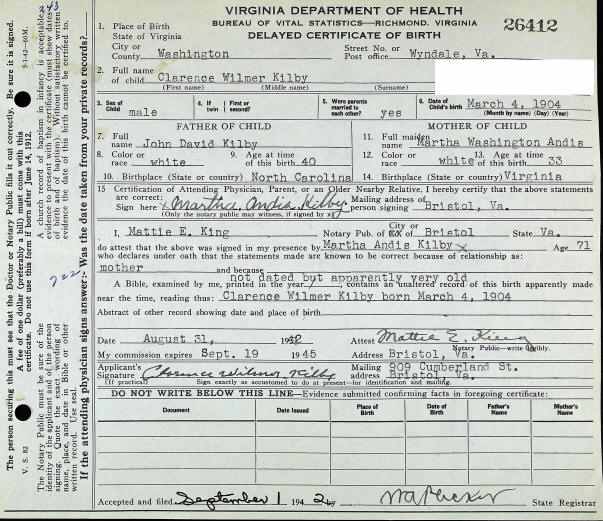 VIRGINIA DEPARTMENT OF HEALTH
BUREAU OF VITAL STATISTICS—RICHMOND, VIRGINIA
DELAYED CERTIFICATE OF BIRTH
26412
1. Place of Birth
State of Virginia
City or County Washington Street No. or Post office Wyndale, Va.
2. Full name of child Clarence Wilmer Kilby
(First name) (Middle name) (Surname)
3. Sex of Child male 4. If twin First or second? 5. Were parents married to each other? yes 6. Date of Child's birth March 4, 1904
(Month by name) (Day) (Year)
FATHER OF CHILD MOTHER OF CHILD
7. Full name John David Kilby 11. Full maiden name Martha Washington Andis
8. Color or race white 9. Age at time of this birth 40 12. Color or race white 13. Age at time of this birth 33
10. Birthplace (State or country) North Carolina 14. Birthplace (State or country) Virginia
15 Certification of Attending Physician, Parent, or an Older Nearby Relative. I hereby certify that the above statements
are correct:
Sign here x Martha Andis Kilby Mailing address of person signing Bristol, Va.
(Only the notary public may witness, if signed by x)
I, Mattie E. King Notary Pub. of City or Co. of Bristol State Va.
do attest that the above was signed in my presence by Martha Andis Kilby x Age 71
who declares under oath that the statements made are known to be correct because of relationship as:
mother and because
not dated but apparently very old
A Bible, examined by me, printed in the year contains an unaltered record of this birth apparently made
near the time, reading thus: Clarence Wilmer Kilby born March 4, 1904
Abstract of other record showing date and place of birth
Date August 31, 1942 Attest Mattie E. King
Notary Public—write legibly.
My commission expires Sept. 19 1945 Address Bristol, Va.
Applicant's Signature Clarence Wilmer Kilby Mailing address 909 Cumberland St. Bristol, Va.
(If practical) Sign exactly as accustomed to do at present—for identification and mailing.
DO NOT WRITE BELOW THIS LINE—Evidence submitted confirming facts in foregoing certificate:
Document Date Issued Place of Birth Date of Birth Father's Name Mother's Name
Accepted and filed September 1 1942 by State Registrar
The person securing this must see that the Doctor or Notary Public fills it out correctly. Be sure it is signed.
5-1-42—60M.
V. S. 82
A fee of one dollar (preferably a bill) must come with this
certificate. Do not use this form if born after June 14, 1912.
243
722
A church record of baptism in infancy is acceptable
evidence to present with the certificate (must show dates
of birth and of baptism). Without satisfactory written
evidence the date of this birth cannot be certified to.
The Notary Public must be sure of the
identity of the applicant and of the person
signing. Quote the exact wording of
name, place, and date in Bible or other
written record. Use seal.
If the attending physician signs answer:- Was the date taken from your private records?